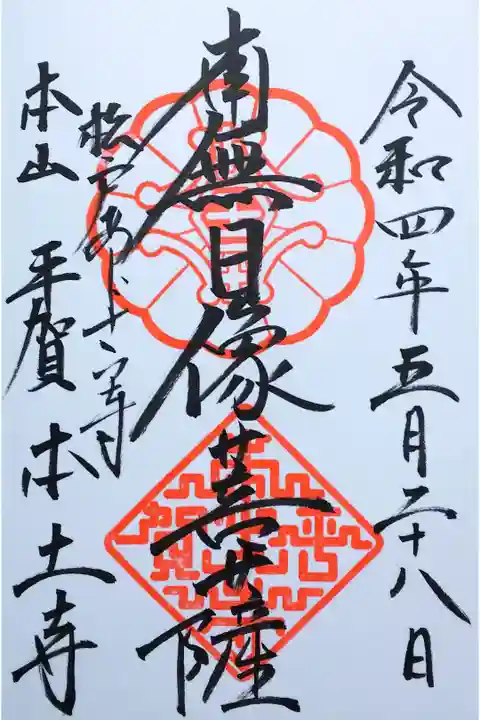 令和四年五月二十八日
南無日像菩薩
松戸あじさい寺
本山 平賀 本土寺